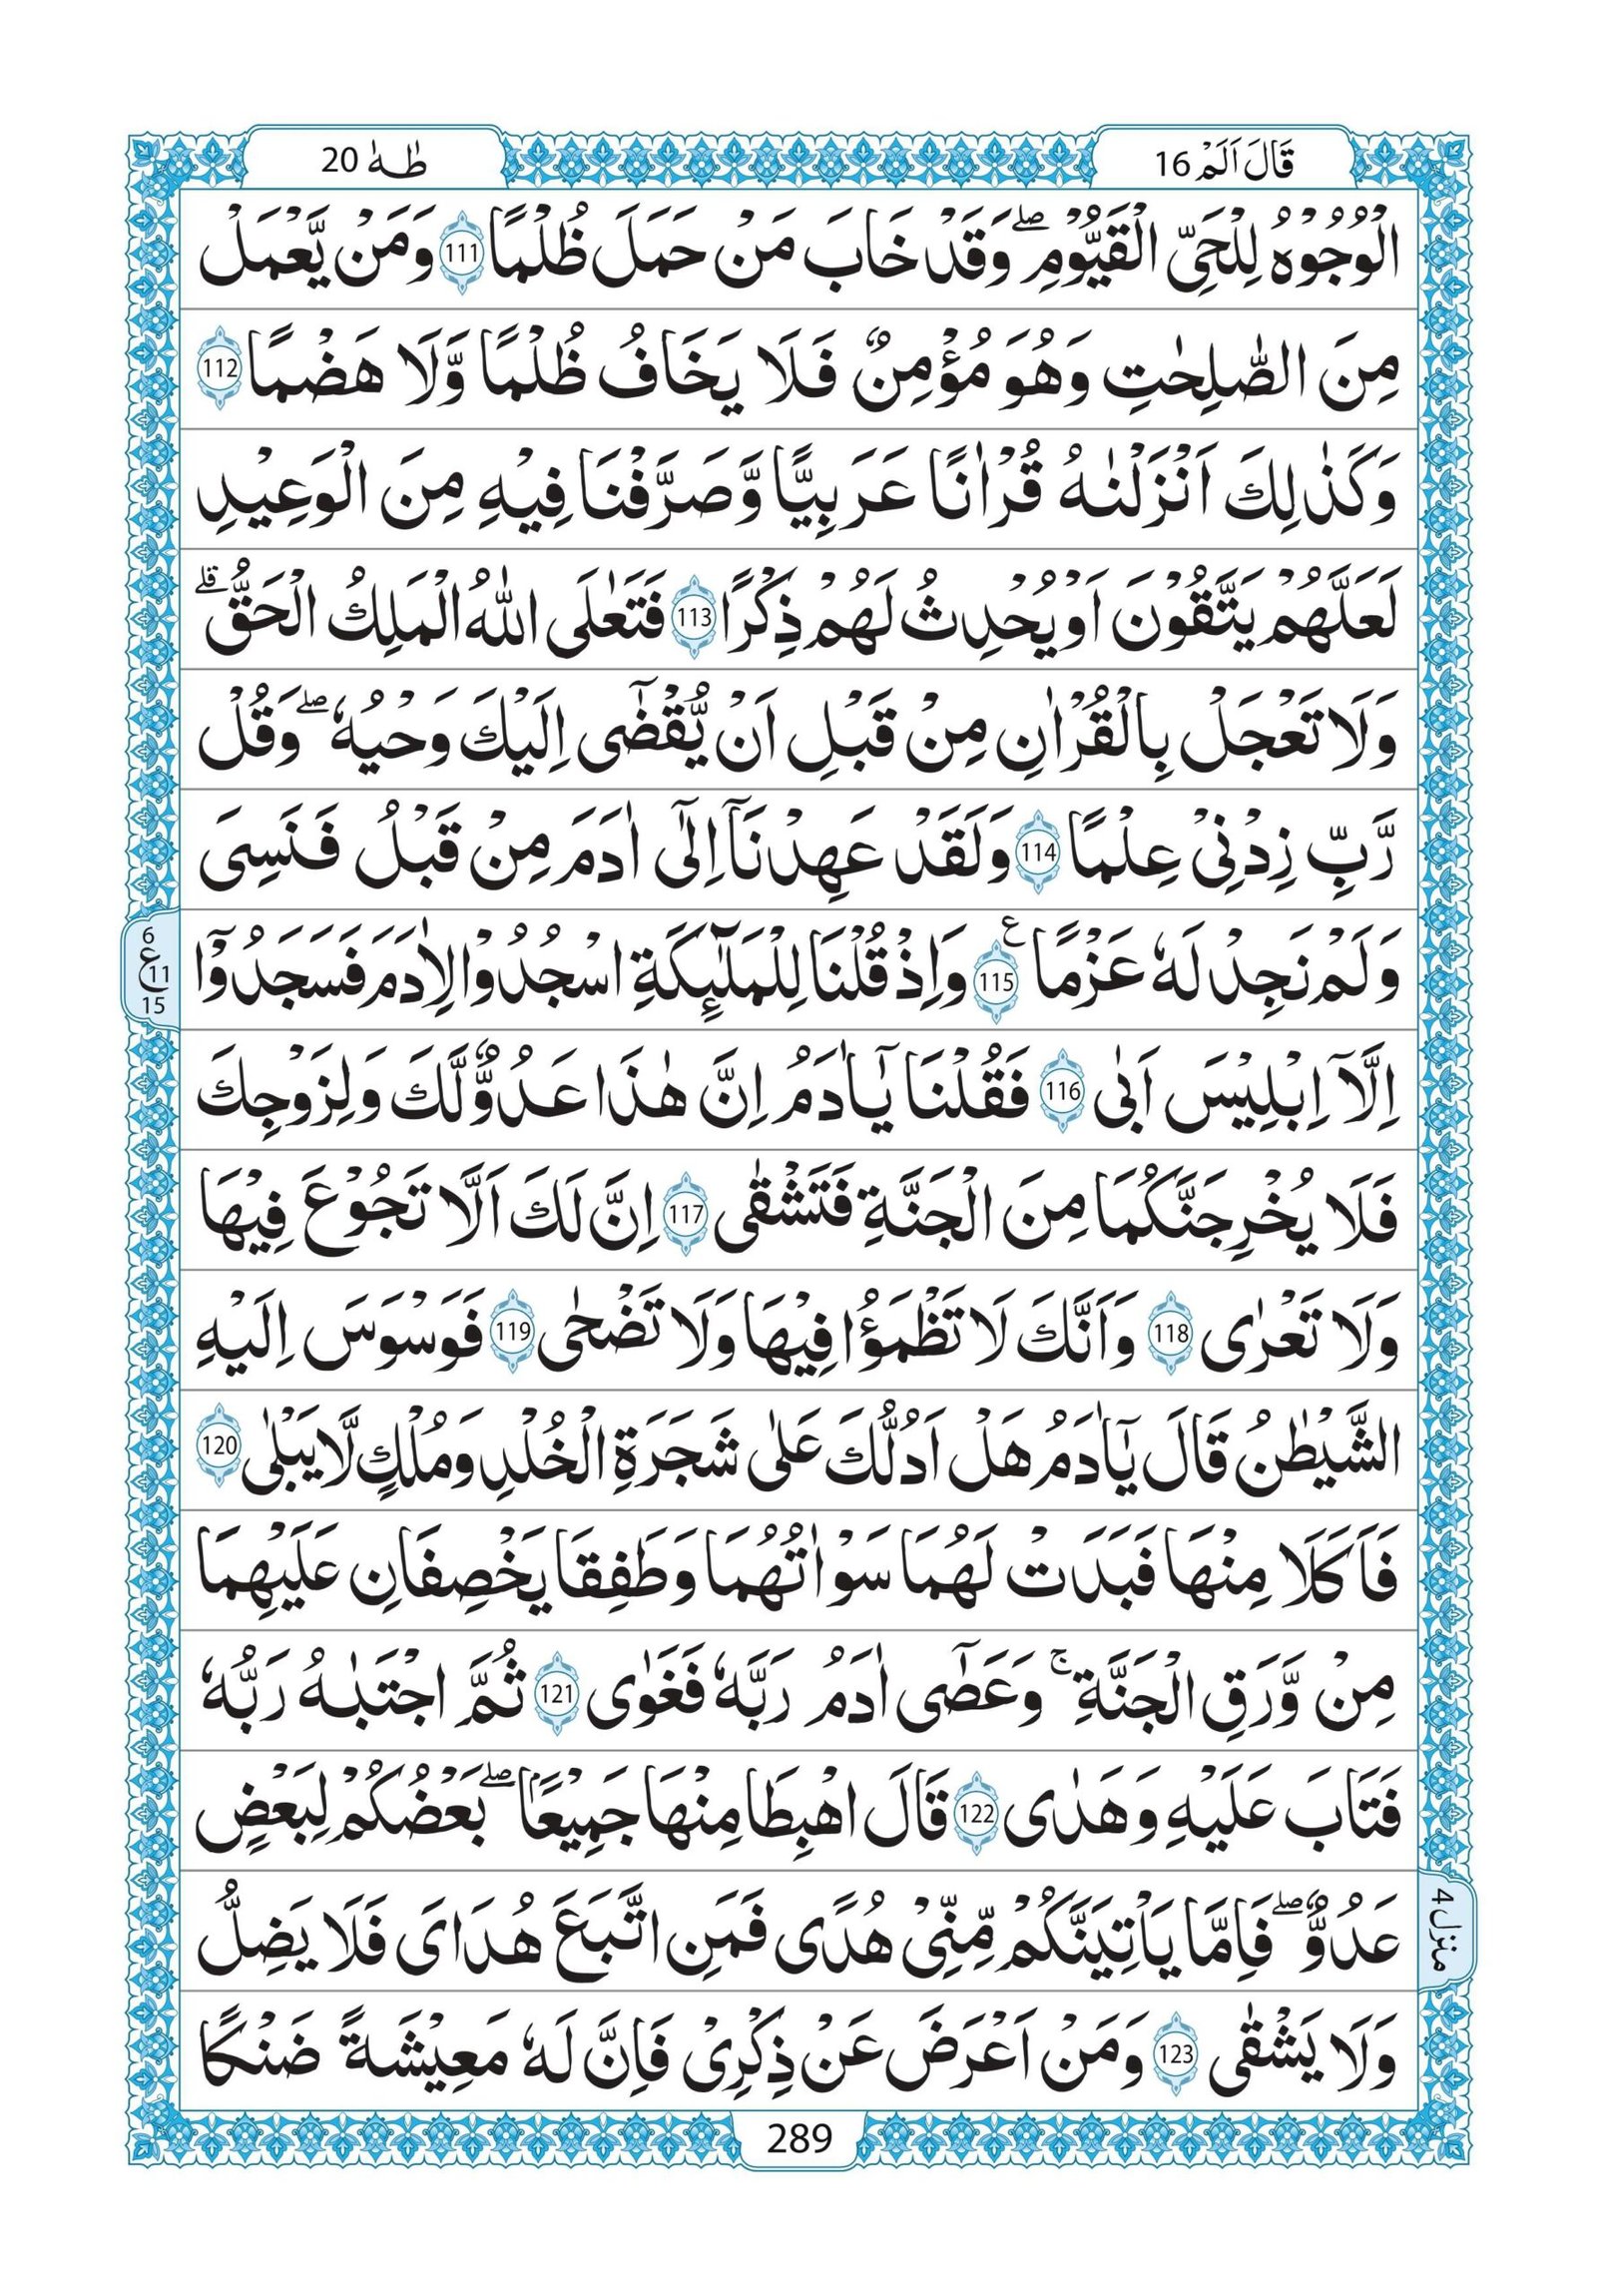 قَالَ اَلَمْ 16
طٰهٰ 20
الْوُجُوْهُ لِلْحَیِّ الْقَیُّوْمِ ۖ وَقَدْ خَابَ مَنْ حَمَلَ ظُلْمًا 111 وَمَنْ یَّعْمَلْ
مِنَ الصّٰلِحٰتِ وَهُوَ مُؤْمِنٌ فَلَا یَخَافُ ظُلْمًا وَّلَا هَضْمًا 112
وَكَذٰلِكَ اَنْزَلْنٰهُ قُرْاٰنًا عَرَبِیًّا وَّصَرَّفْنَا فِیْهِ مِنَ الْوَعِیْدِ
لَعَلَّهُمْ یَتَّقُوْنَ اَوْ یُحْدِثُ لَهُمْ ذِكْرًا 113 فَتَعٰلَی اللّٰهُ الْمَلِكُ الْحَقُّ ۗ
وَلَا تَعْجَلْ بِالْقُرْاٰنِ مِنْ قَبْلِ اَنْ یُّقْضٰۤی اِلَیْكَ وَحْیُهٗ ۖ وَقُلْ
رَّبِّ زِدْنِیْ عِلْمًا 114 وَلَقَدْ عَهِدْنَاۤ اِلٰۤی اٰدَمَ مِنْ قَبْلُ فَنَسِیَ
وَلَمْ نَجِدْ لَهٗ عَزْمًا ع 115 وَاِذْ قُلْنَا لِلْمَلٰٓئِكَةِ اسْجُدُوْا لِاٰدَمَ فَسَجَدُوْۤا
6 ع 11 15
اِلَّاۤ اِبْلِیْسَ اَبٰی 116 فَقُلْنَا یٰۤاٰدَمُ اِنَّ هٰذَا عَدُوٌّ لَّكَ وَلِزَوْجِكَ
فَلَا یُخْرِجَنَّكُمَا مِنَ الْجَنَّةِ فَتَشْقٰی 117 اِنَّ لَكَ اَلَّا تَجُوْعَ فِیْهَا
وَلَا تَعْرٰی 118 وَاَنَّكَ لَا تَظْمَؤُا فِیْهَا وَلَا تَضْحٰی 119 فَوَسْوَسَ اِلَیْهِ
الشَّیْطٰنُ قَالَ یٰۤاٰدَمُ هَلْ اَدُلُّكَ عَلٰی شَجَرَةِ الْخُلْدِ وَمُلْكٍ لَّا یَبْلٰی 120
فَاَكَلَا مِنْهَا فَبَدَتْ لَهُمَا سَوْاٰتُهُمَا وَطَفِقَا یَخْصِفَانِ عَلَیْهِمَا
مِنْ وَّرَقِ الْجَنَّةِ ۚ وَعَصٰۤی اٰدَمُ رَبَّهٗ فَغَوٰی 121 ثُمَّ اجْتَبٰىهُ رَبُّهٗ
فَتَابَ عَلَیْهِ وَهَدٰی 122 قَالَ اهْبِطَا مِنْهَا جَمِیْعًاۢ ۖ بَعْضُكُمْ لِبَعْضٍ
عَدُوٌّ ۖ فَاِمَّا یَاْتِیَنَّكُمْ مِّنِّیْ هُدًی فَمَنِ اتَّبَعَ هُدَایَ فَلَا یَضِلُّ
منزل 4
وَلَا یَشْقٰی 123 وَمَنْ اَعْرَضَ عَنْ ذِكْرِیْ فَاِنَّ لَهٗ مَعِیْشَةً ضَنْكًا
289